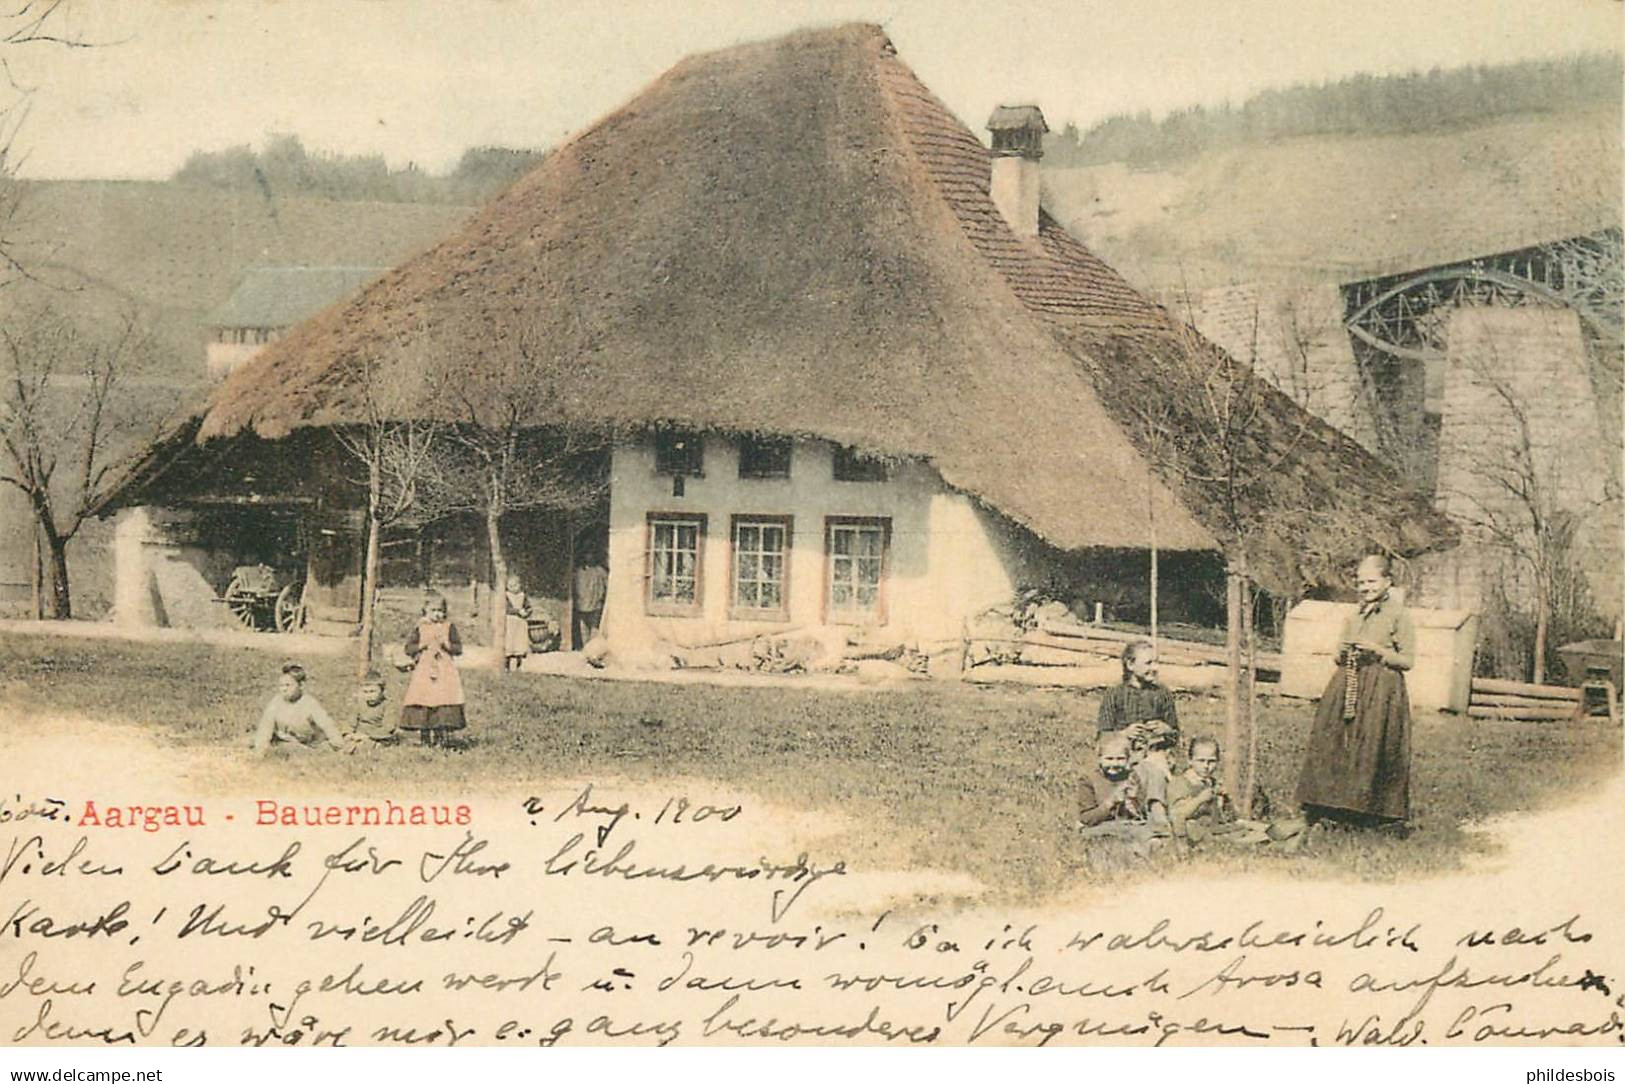 Aargau - Bauernhaus 2 Aug. 1900
Vielen Dank für Ihre liebenswürdige
Karte! Und vielleicht – au revoir! Da ich wahrscheinlich nach
dem Engadin gehen werde u. dann womögl. auch Arosa aufzusuchen,
denn es wäre mir e. ganz besonderes Vergnügen –. Wald. Conrad.
Visit our eBay page: www.ebay.com/str/phildesbois
phildesbois